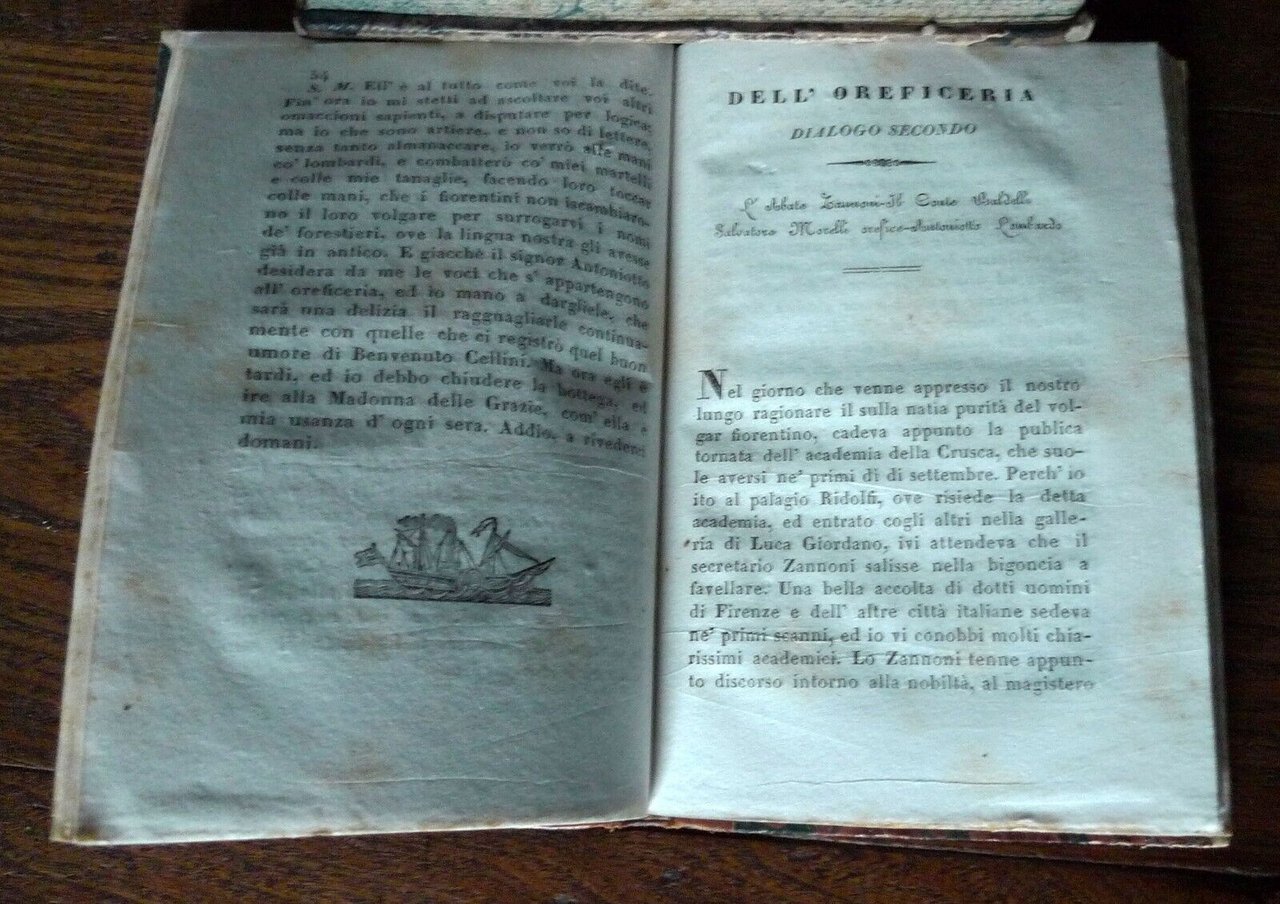 54
S. M. Ell' è al tutto come voi la dite.
Fin' ora io mi stetti ad ascoltare voi altri
omaccioni sapienti, a disputare per logica;
ma io che sono artiere, e non so di lettere,
senza tanto almanaccare, io verrò alle mani
co' lombardi, e combatterò co' miei martelli
e colle mie tanaglie, facendo loro toccar
colle mani, che i fiorentini non iscambiaro-
no il loro volgare per surrogarvi i nomi
de' forestieri, ove la lingua nostra gli avesse
già in antico. E giacchè il signor Antoniotto
desidera da me le voci che s' appartengono
all' oreficeria, ed io mano a dargliele, che
sarà una delizia il ragguagliarle continua-
mente con quelle che ci registrò quel buon
umore di Benvenuto Cellini. Ma ora egli è
tardi, ed io debbo chiudere la bottega, ed
ire alla Madonna delle Grazie, com' ella è
mia usanza d' ogni sera. Addio, a rivederci
domani.
DELL' OREFICERIA
DIALOGO SECONDO
L' Abbate Zannoni-Il Conte Baldelli
Salvatore Morelli orefice-Antoniotto Lombardo
Nel giorno che venne appresso il nostro
lungo ragionare il sulla natia purità del vol-
gar fiorentino, cadeva appunto la publica
tornata dell' academia della Crusca, che suo-
le aversi ne' primi dì di settembre. Perch' io
ito al palagio Ridolfi, ove risiede la detta
academia, ed entrato cogli altri nella galle-
ria di Luca Giordano, ivi attendeva che il
secretario Zannoni salisse nella bigoncia a
favellare. Una bella accolta di dotti uomini
di Firenze e dell' altre città italiane sedeva
ne' primi scanni, ed io vi conobbi molti chia-
rissimi academici. Lo Zannoni tenne appun-
to discorso intorno alla nobiltà, al magistero